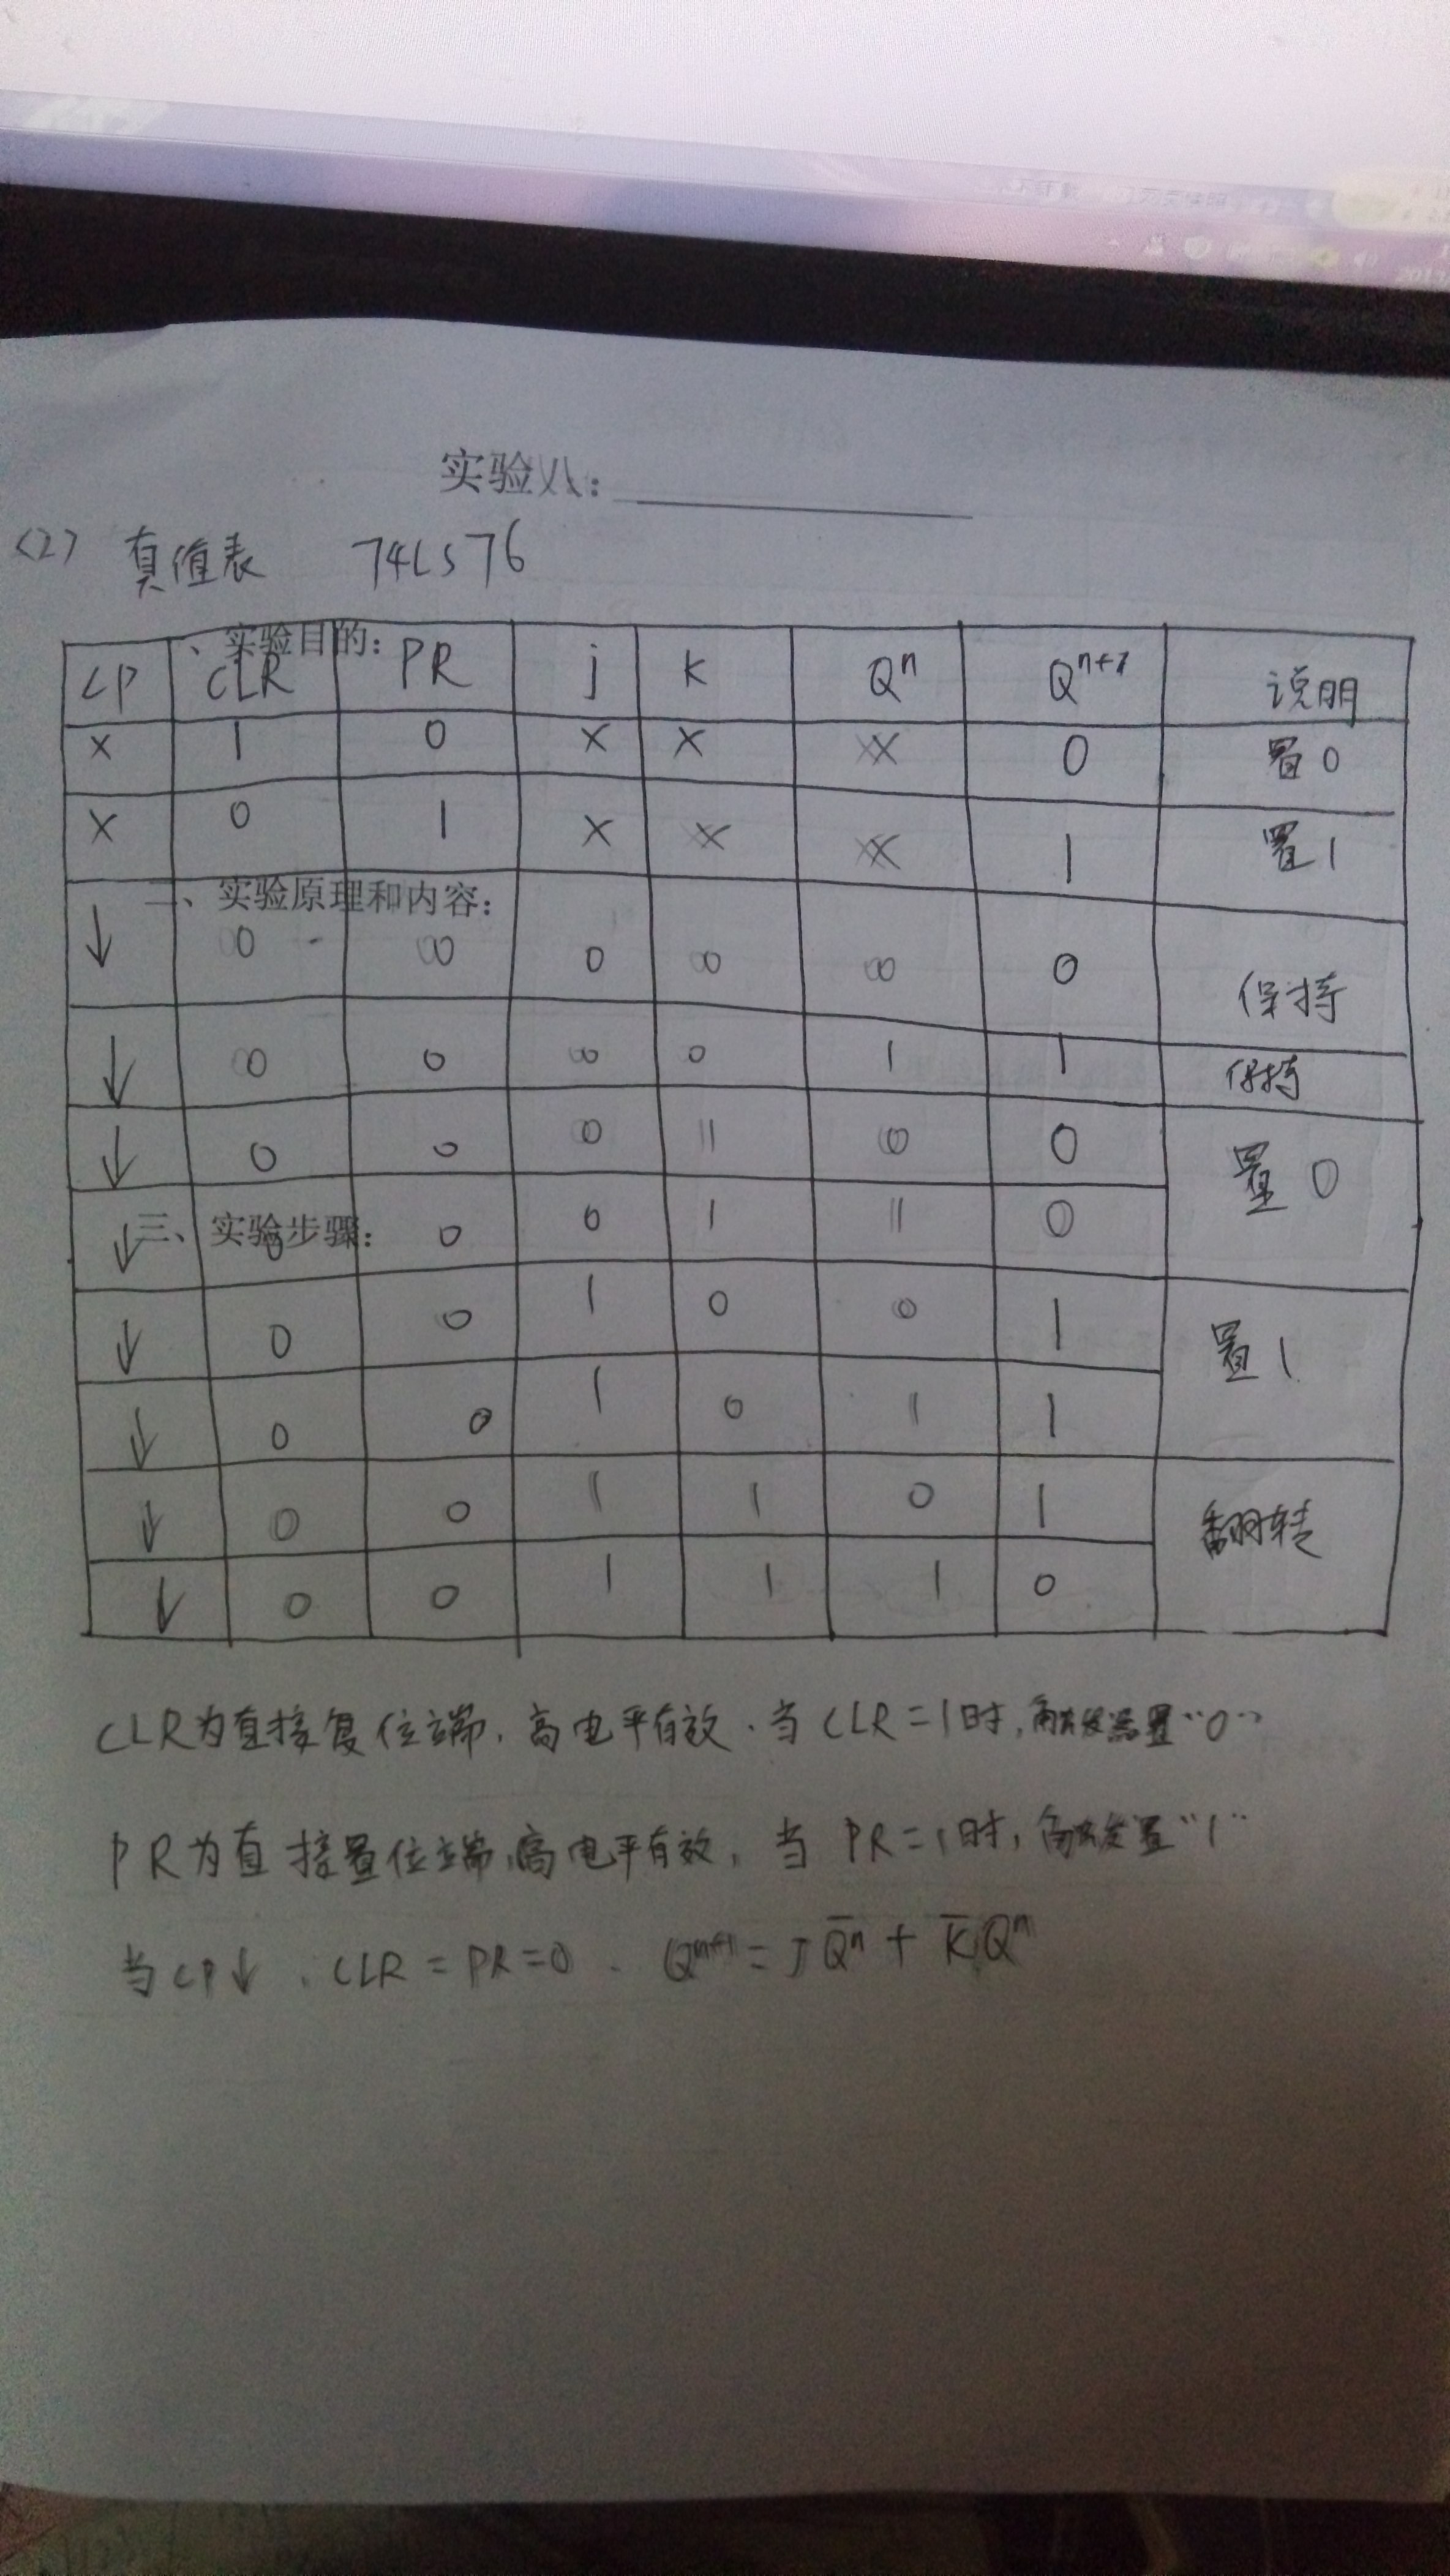 实验八:
(2) 真值表 74LS76
一、实验目的:
CP CLR PR j K Qⁿ Qⁿ⁺¹ 说明
× 1 0 × × × 0 置0
× 0 1 × × × 1 置1
二、实验原理和内容:
↓ 0 0 0 0 0 0 保持
↓ 0 0 0 0 1 1 保持
↓ 0 0 0 1 0 0 置0
↓ 0 0 0 1 1 0
三、实验步骤:
↓ 0 0 1 0 0 1 置1
↓ 0 0 1 0 1 1
↓ 0 0 1 1 0 1 翻转
↓ 0 0 1 1 1 0
CLR为直接复位端,高电平有效.当CLR=1时,触发器置“0”
PR为直接置位端,高电平有效,当PR=1时,触发置“1”
当CP↓,CLR=PR=0. Qⁿ⁺¹=JQ̅ⁿ+K̅Qⁿ